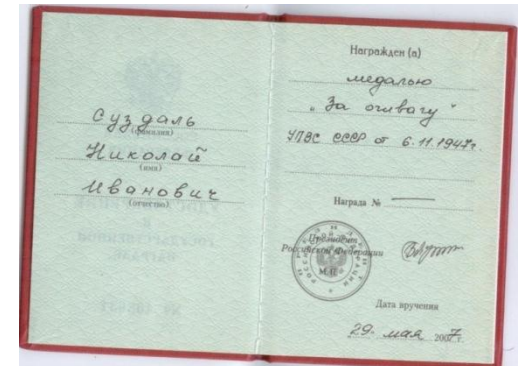 Суздаль
(фамилия)
Николай
(имя)
Иванович
(отчество)
Награжден (а)
медалью
„За отвагу"
УПВС СССР от 6.11.1947г.
Награда № —
Президент
Российской Федерации
М.П.
Дата вручения
29. мая 2007 г.